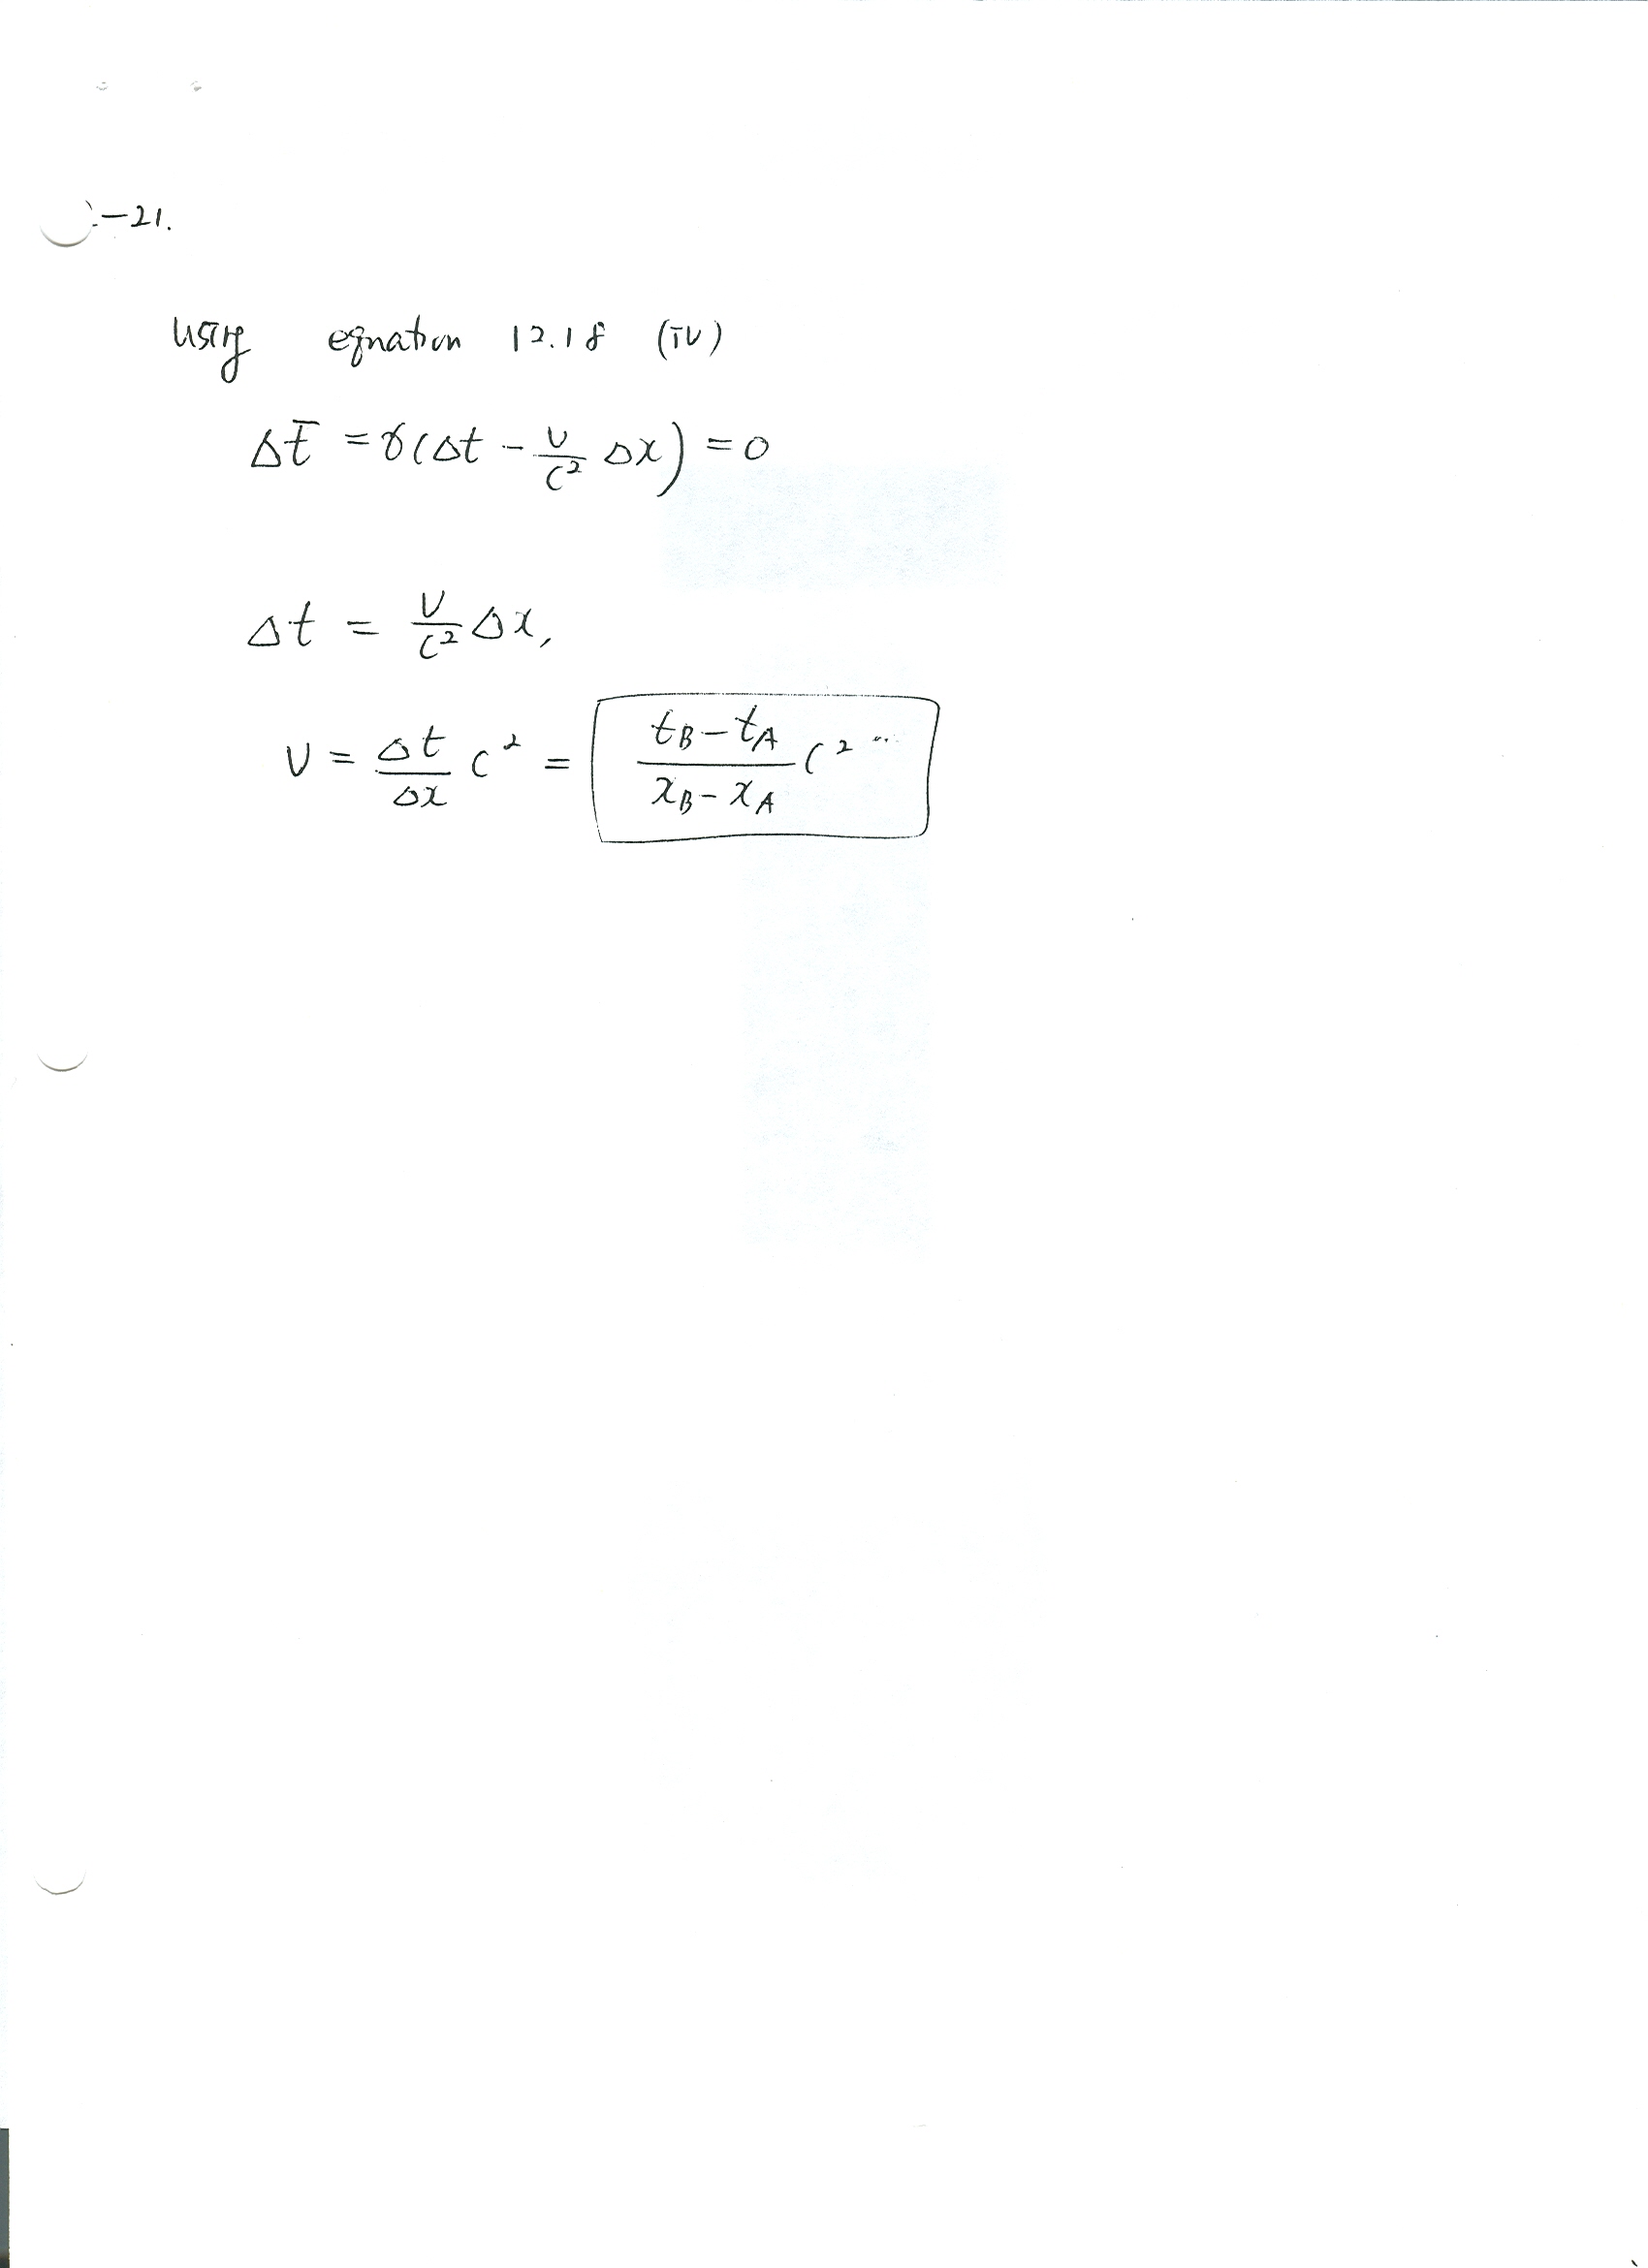 -21.
Using equation 12.18 (iv)
Δt̄ = γ(Δt - v/c² Δx) = 0
Δt = v/c² Δx,
v = Δt/Δx c² = (tB - tA)/(xB - xA) c²